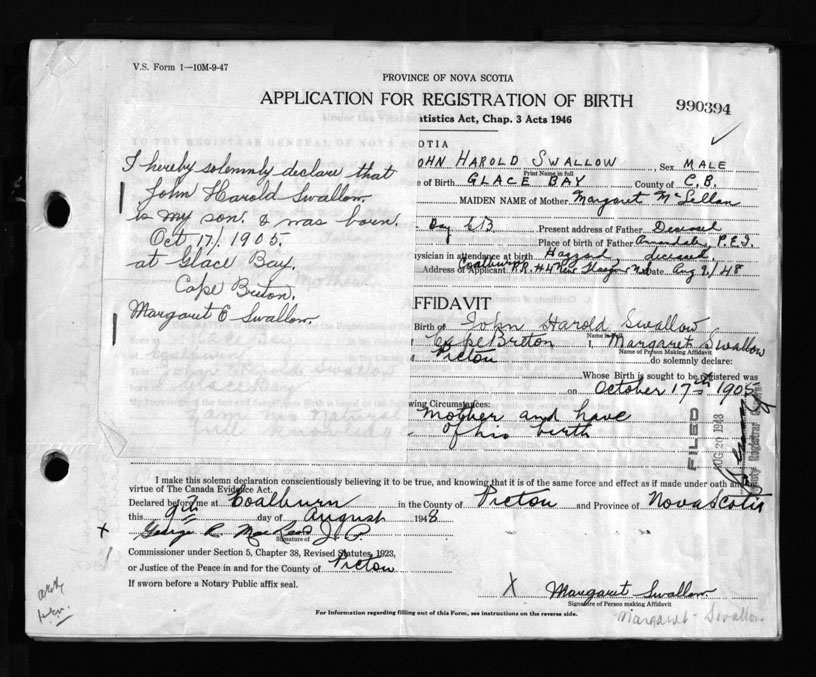 V.S. Form 1—10M-9-47
PROVINCE OF NOVA SCOTIA
APPLICATION FOR REGISTRATION OF BIRTH
990394
tatistics Act, Chap. 3 Acts 1946
OTIA
OHN HAROLD SWALLOW, Sex MALE
Print Name in full
e of Birth GLACE BAY County of C.B.
MAIDEN NAME of Mother Margaret McLellan
Bay C.B. Present address of Father Deceased
Place of birth of Father Annandale, P.E.I.
ysician in attendance at birth Haszard, deceased
Coalburn
Address of Applicant R.R. #4 New Glasgow N.S. Date Aug 9/48
I hereby solemnly declare that
John Harold Swallow
is my son. & was born.
Oct 17/1905.
at Glace Bay.
Cape Breton.
Margaret E Swallow.
FFIDAVIT
Birth of John Harold Swallow
Name in
Cape Breton I, Margaret Swallow
Name of Person Making Affidavit
Pictou do solemnly declare:
Whose Birth is sought to be registered was
on October 17th 1905
wing Circumstances:
Mother and have
of his birth
FILED
AUG 20 1948
I make this solemn declaration conscientiously believing it to be true, and knowing that it is of the same force and effect as if made under oath and
virtue of The Canada Evidence Act.
Declared before me at Coalburn in the County of Pictou and Province of Nova Scotia
this 9th day of August 1948
X George R. MacLeod J.P.
Signature of
Commissioner under Section 5, Chapter 38, Revised Statutes, 1923,
or Justice of the Peace in and for the County of Pictou
If sworn before a Notary Public affix seal.
X Margaret Swallow
Signature of Person making Affidavit
For Information regarding filling out of this Form, see instructions on the reverse side.
Margaret Swallow